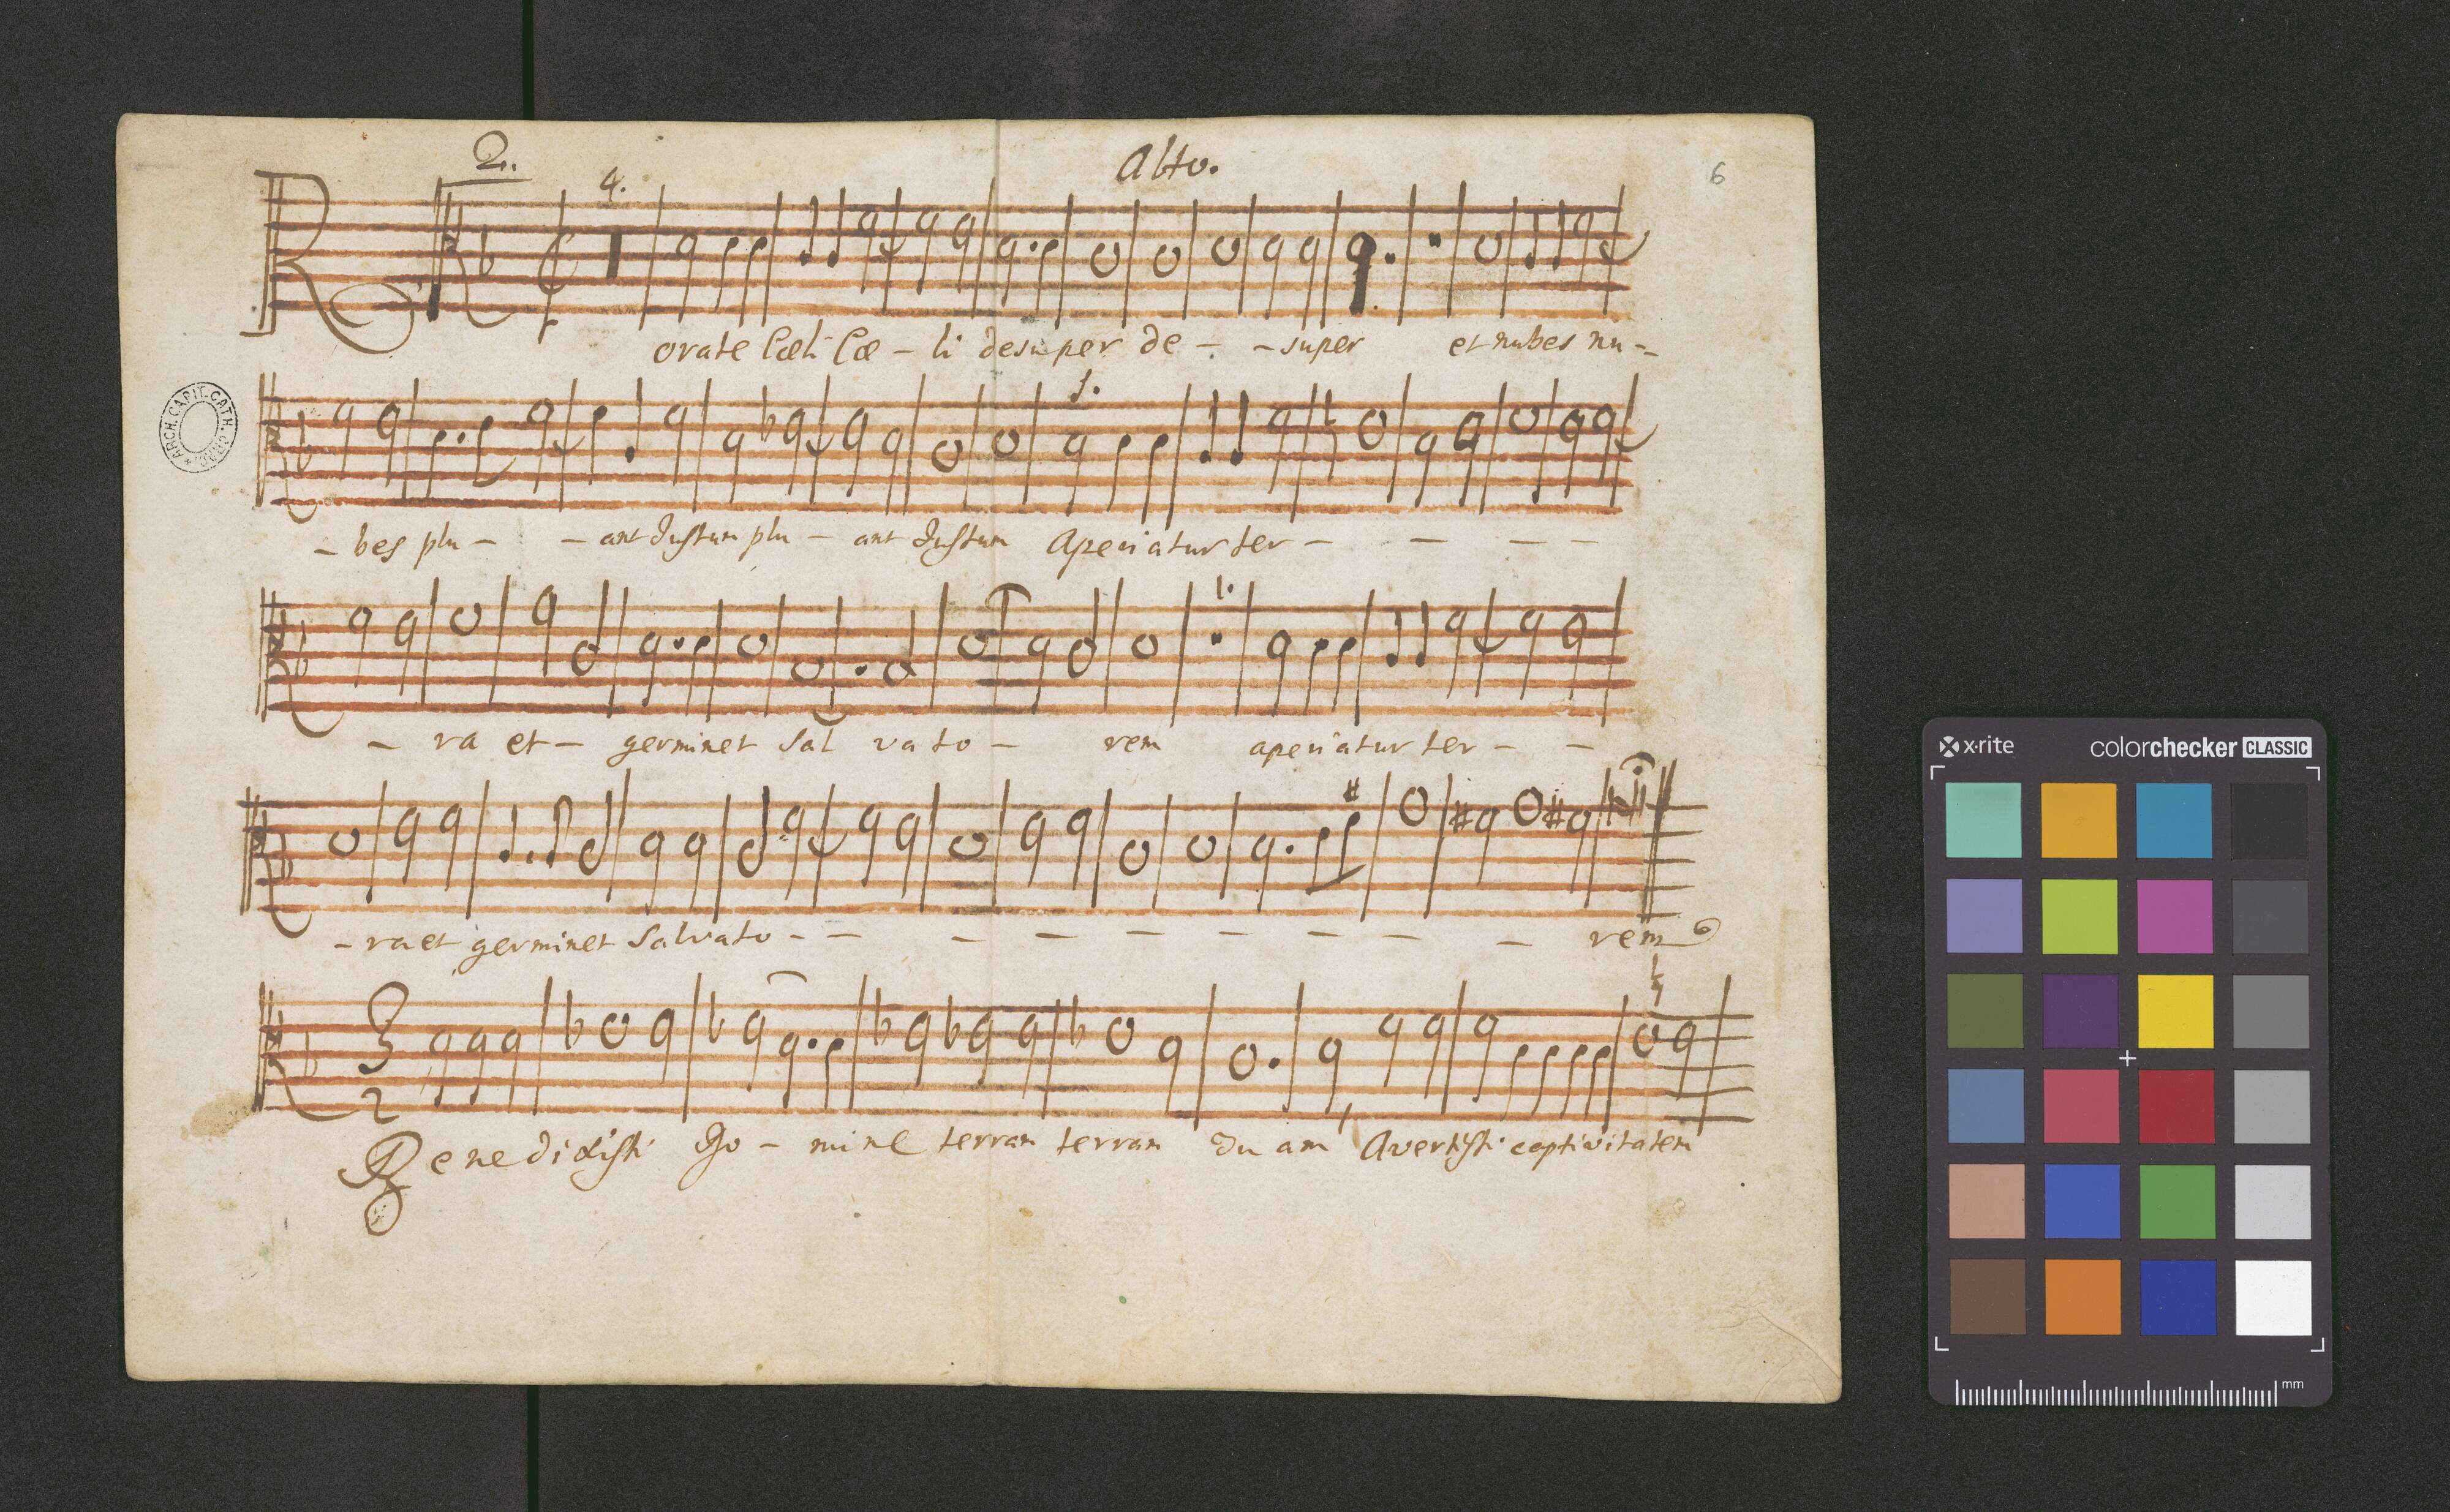 2.. Alto. 6
4.
R orate Cæli Cæ - li desuper de - - super et nubes nu -
ARCH. CAPIT. CATH.
1.
- bes plu - - ant Justum plu - ant Justum Aperiatur ter - - - -
1.
- ra et - germinet Sal va to - rem aperiatur ter - -
- ra et germinet Salvato - - - - - - - - - rem
3 2
Benedixisti Do - mine terram terram Tu am Avertisti captivitatem
x·rite colorchecker CLASSIC
mm